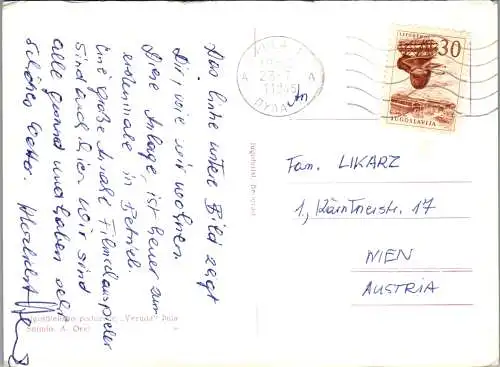 Das linke untere Bild zeigt
Dir wie wir wohnen.
Diese Anlage, ist heuer zum
erstenmale in Betrieb.
Eine große Anzahl Filmschauspieler
sind auch hier. Wir sind
alle gesund und haben sehr
schönes Wetter. Herzlichst
PULA
ПУЛА
A A
LITOSTROJ
30
JUGOSLAVIJA
Fam. LIKARZ
1., Kärntnerstr. 17
WIEN
AUSTRIA
"Veruda" Pula
Snimio: A.